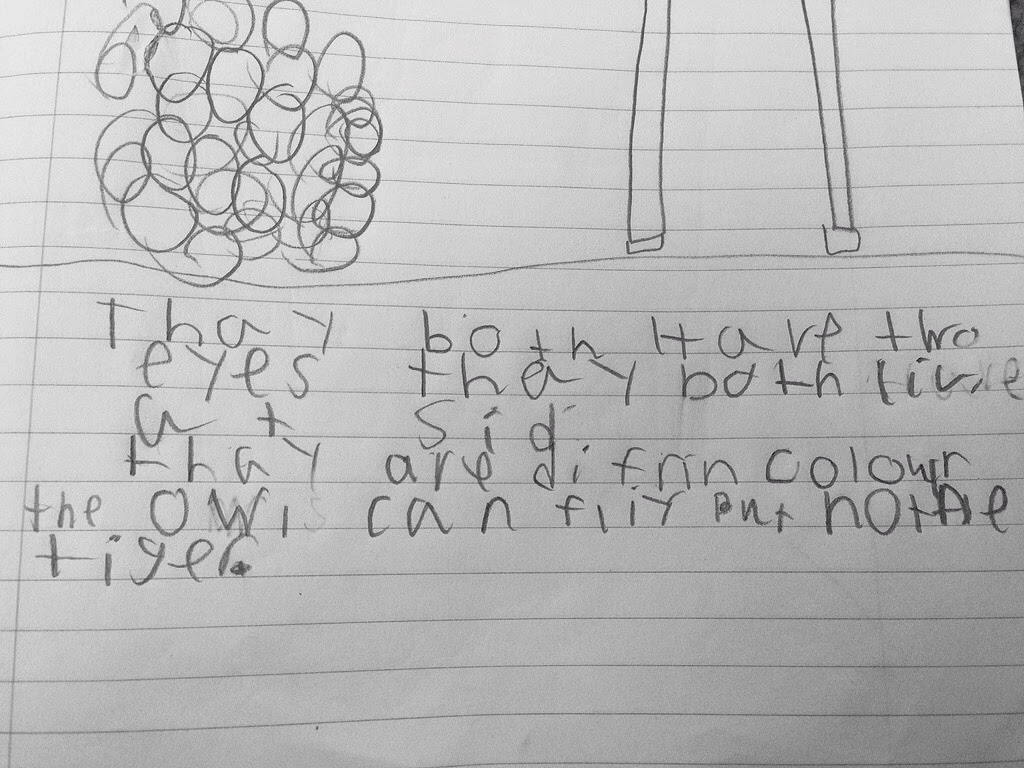 Thay both Have two
eyes thay both live
at sid
thay are difrin colour
the owl can fliy but not the
tiger.